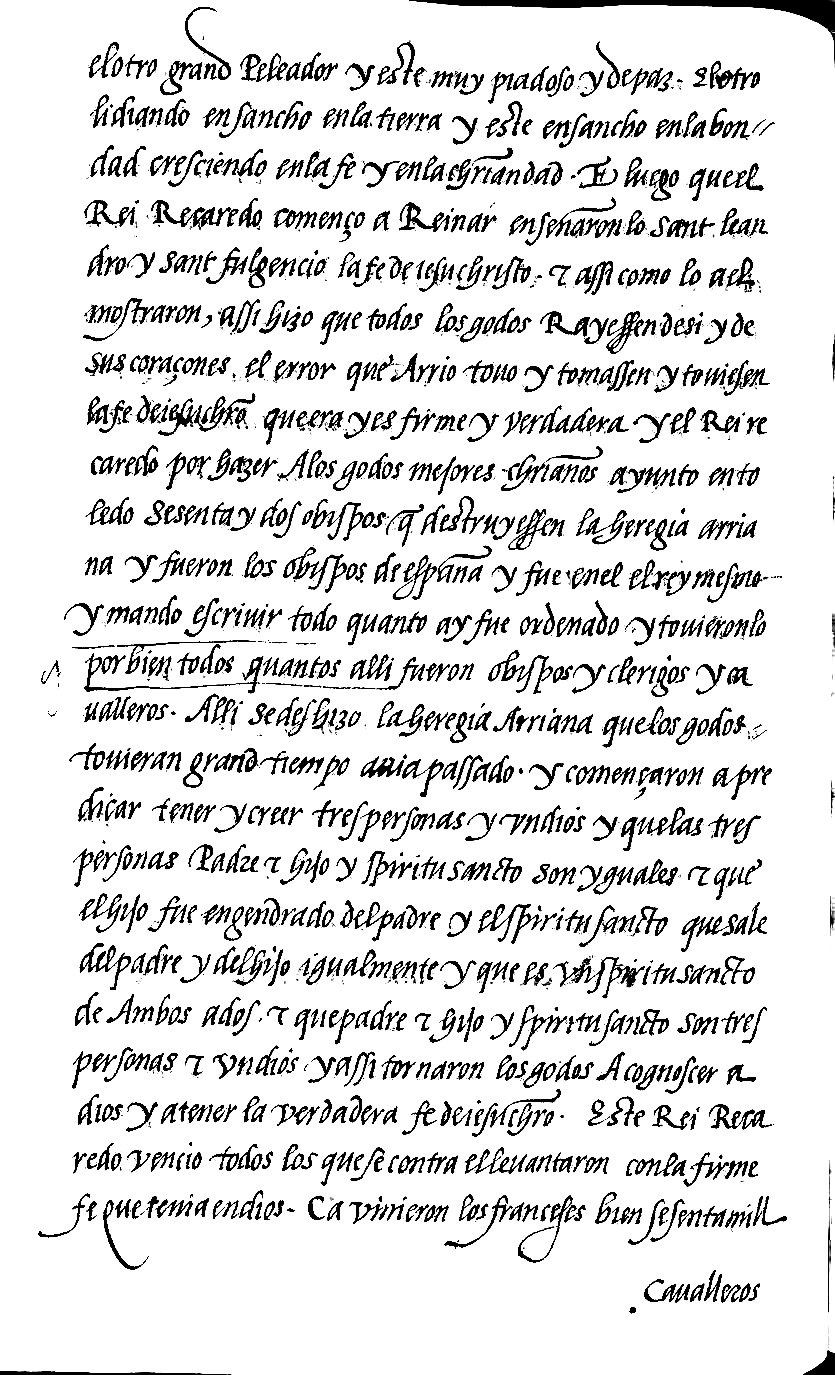 el otro grand Peleador y este muy piadoso y de paz. El otro
lidiando ensancho en la tierra y este ensancho en la bon//
dad cresciendo en la fe y en la chriandad. E luego que el
Rei Recaredo començo a Reinar enseñaron lo sant lean
dro y sant fulgencio la fe de iesu christo. & assi como lo a el
mostraron, assi hizo que todos los godos Rayessen de si y de
sus coraçones el error que Arrio tovo y tomassen y toviesen
la fe de iesuchro que era y es firme y verdadera y el Rei re
caredo por hazer A los godos mejores chrianos ayunto en to
ledo sesenta y dos obispos q̃ destruyessen la heregia arria
na y fueron los obispos de españa y fue en el el rey mesmo
y mando escrivir todo quanto ay fue ordenado y tovieron lo
por bien todos quantos alli fueron obispos y clerigos y ca
valleros. Alli se deshizo la heregia Arriana que los godos
tovieran grand tiempo avia passado. y començaron a pre
dicar tener y creer tres personas y vn dios y que las tres
personas Padre & hijo y spiritu sancto son yguales & que
el hijo fue engendrado del padre y el spiritu sancto que sale
del padre y del hijo igualmente y que es vn spiritu sancto
de Ambos a dos. & que padre & hijo y spiritu sancto son tres
personas & vn dios y assi tornaron los godos A cognoscer a
dios y a tener la verdadera fe de iesuchro. Este Rei Reca
redo vencio todos los que se contra el levantaron con la firme
fe que tenia en dios. Ca vinieron los franceses bien sesenta mill
Cavalleros